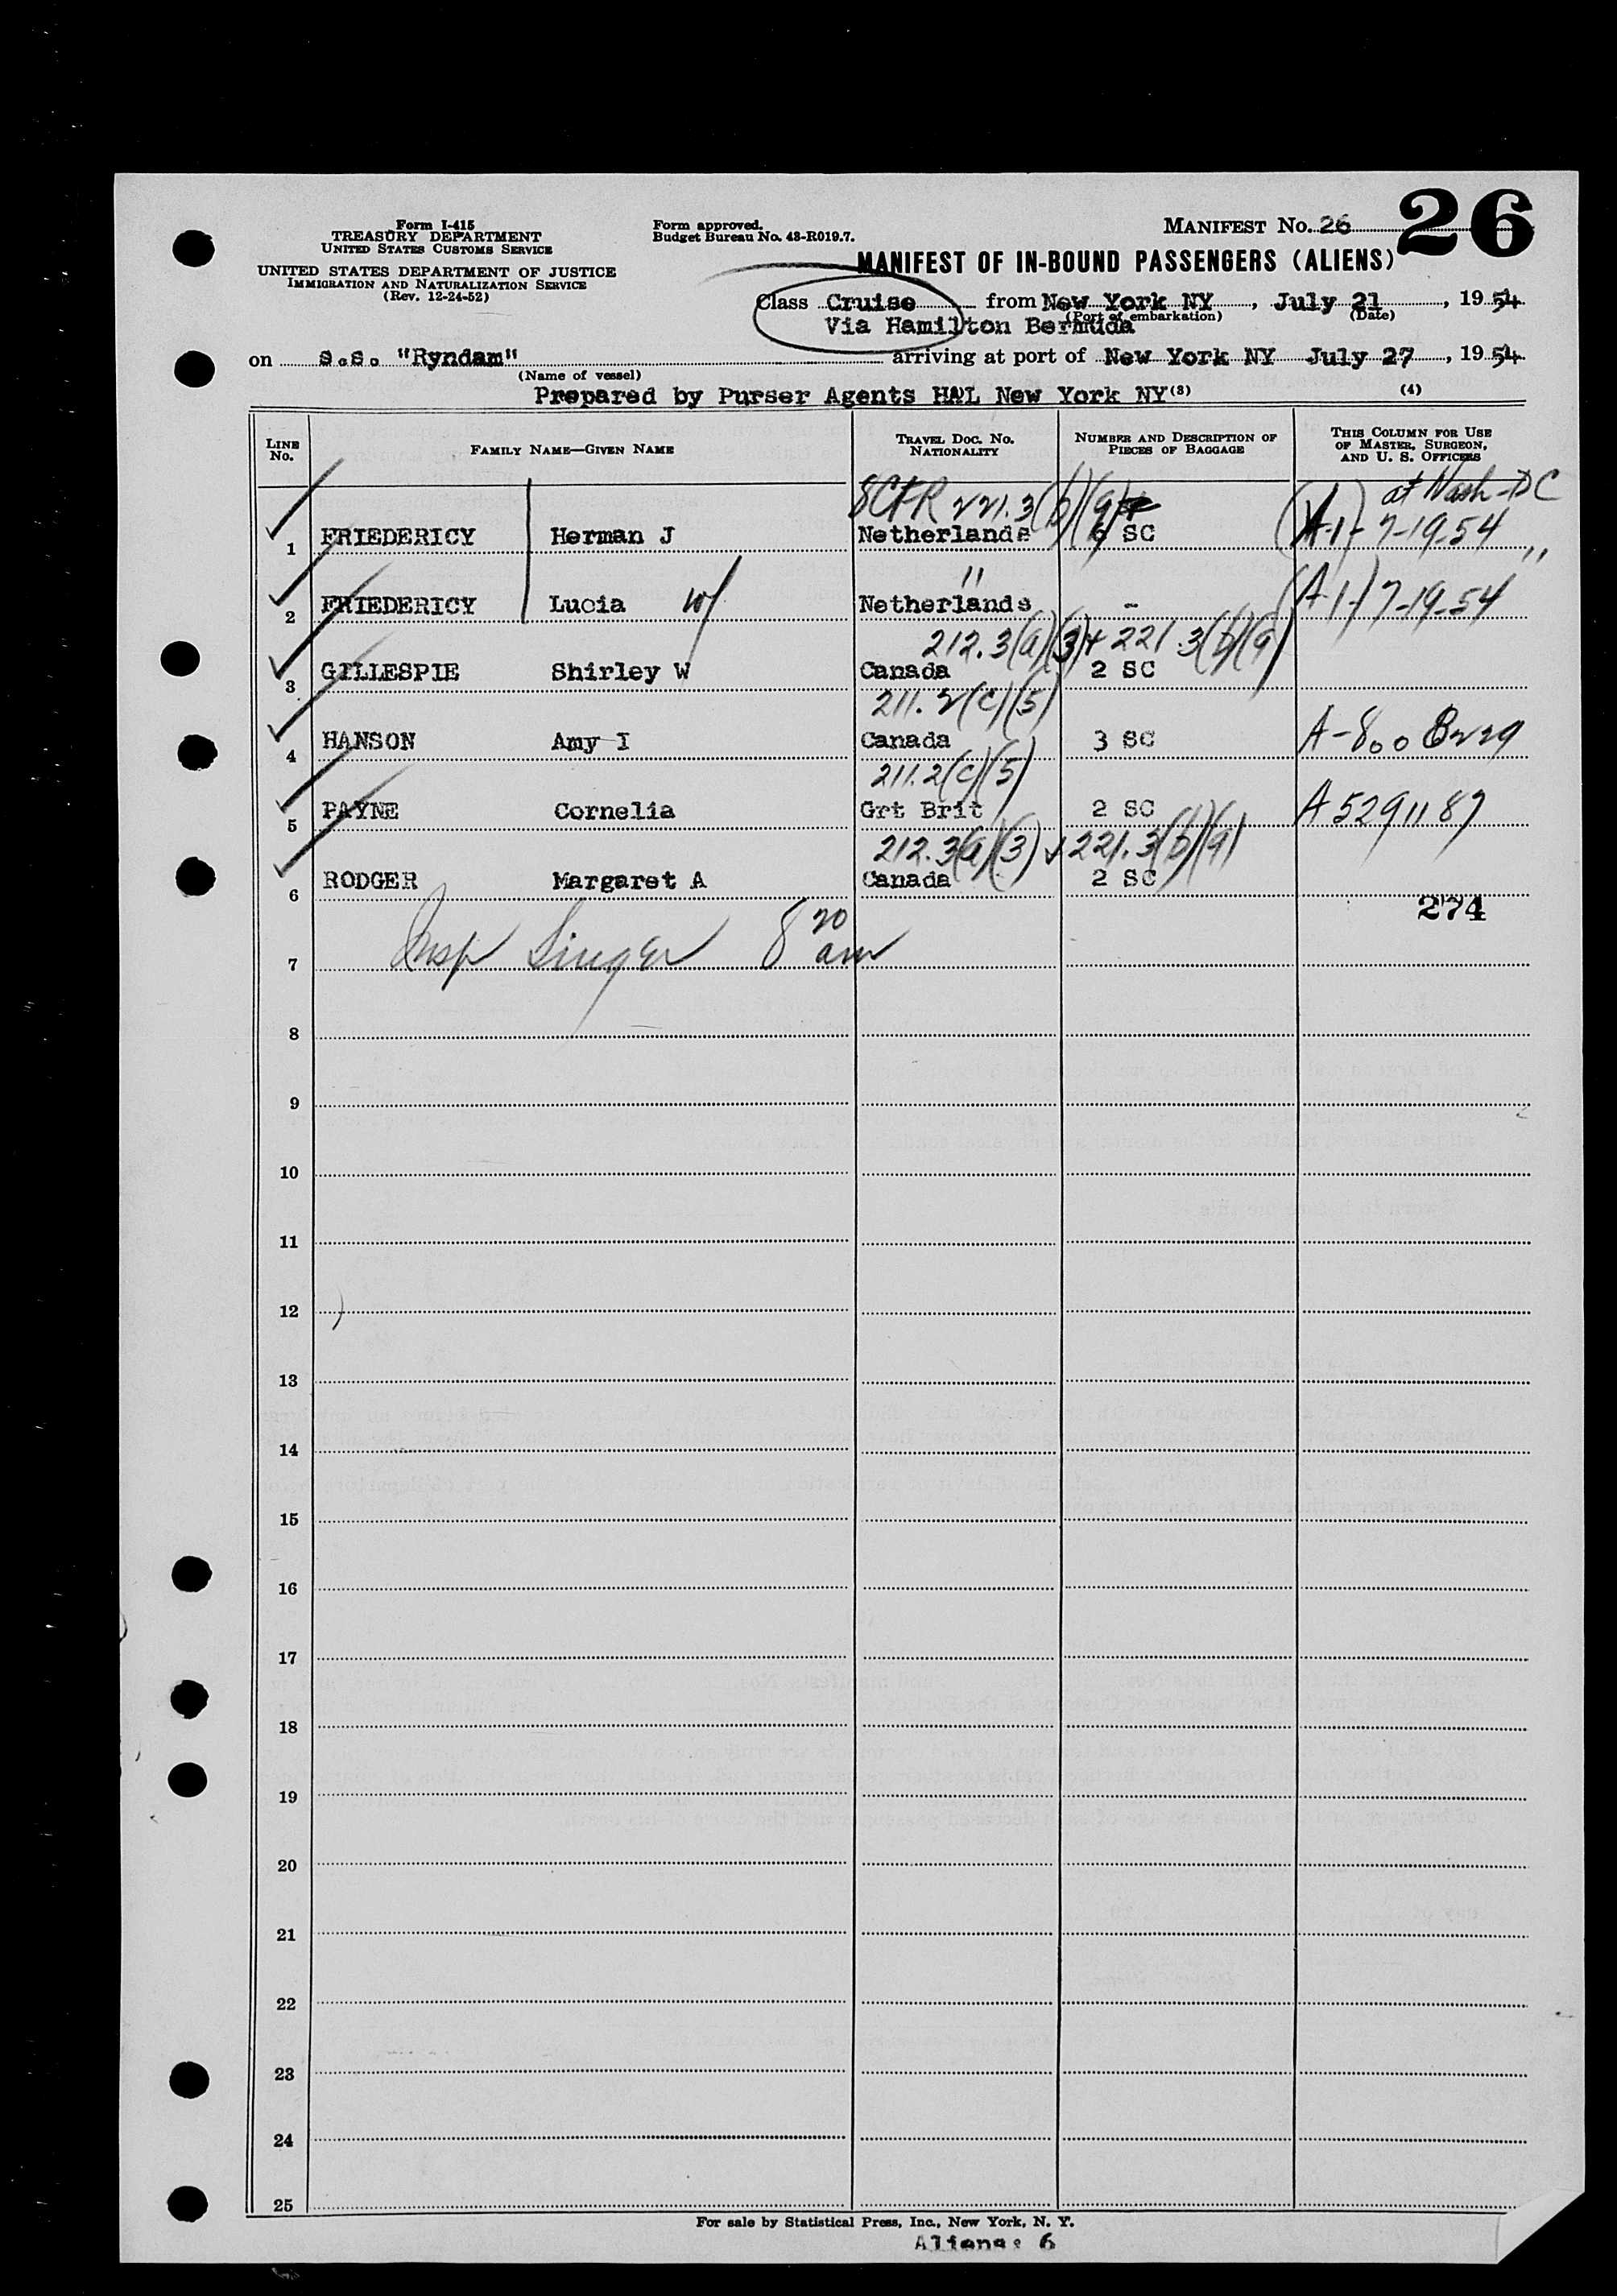 26
Form I-415
TREASURY DEPARTMENT
UNITED STATES CUSTOMS SERVICE
UNITED STATES DEPARTMENT OF JUSTICE
IMMIGRATION AND NATURALIZATION SERVICE
(Rev. 12-24-52)
Form approved.
Budget Bureau No. 43-R019.7.
MANIFEST No. 26
MANIFEST OF IN-BOUND PASSENGERS (ALIENS)
Class Cruise from New York NY, July 21, 1954
(Port of embarkation) (Date)
Via Hamilton Bermuda
on s.s. "Ryndam" arriving at port of New York NY July 27, 1954
(Name of vessel)
Prepared by Purser Agents HAL New York NY (3) (4)
LINE No. FAMILY NAME—GIVEN NAME TRAVEL DOC. No. NATIONALITY NUMBER AND DESCRIPTION OF PIECES OF BAGGAGE THIS COLUMN FOR USE OF MASTER, SURGEON, AND U. S. OFFICERS
8CFR 221.3(b)(9) at Wash-DC
1 FRIEDERICY Herman J Netherlands 6 SC (A-1) 7-19-54
" "
2 FRIEDERICY Lucia W/ Netherlands - (A-1) 7-19-54
212.3(a)(3) + 221.3(b)(9)
3 GILLESPIE Shirley W Canada 2 SC
211.2(c)(5)
4 HANSON Amy I Canada 3 SC A-800 8229
211.2(c)(5)
5 PAYNE Cornelia Grt Brit 2 SC A5291187
212.3(a)(3) + 221.3(b)(9)
6 RODGER Margaret A Canada 2 SC
274
7 Insp Singer 8 20 am
8
9
10
11
12
13
14
15
16
17
18
19
20
21
22
23
24
25
For sale by Statistical Press, Inc., New York, N. Y.
Aliens: 6